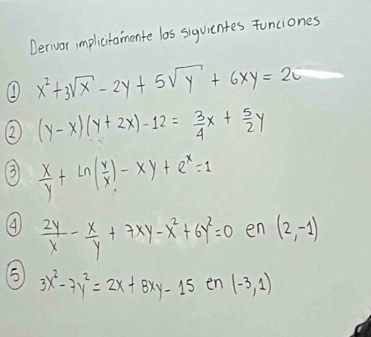 Derivar implicitamente las siguientes funciones
① x² + 3√x - 2y + 5√y + 6xy = 20
② (y-x)(y+2x)-12 = 3/4 x + 5/2 y
③ x/y + Ln(y/x) - xy + e^x = 1
④ 2y/x - x/y + 7xy - x² + 6y² = 0 en (2,-1)
⑤ 3x² - 7y² = 2x + 8xy - 15 en (-3,1)